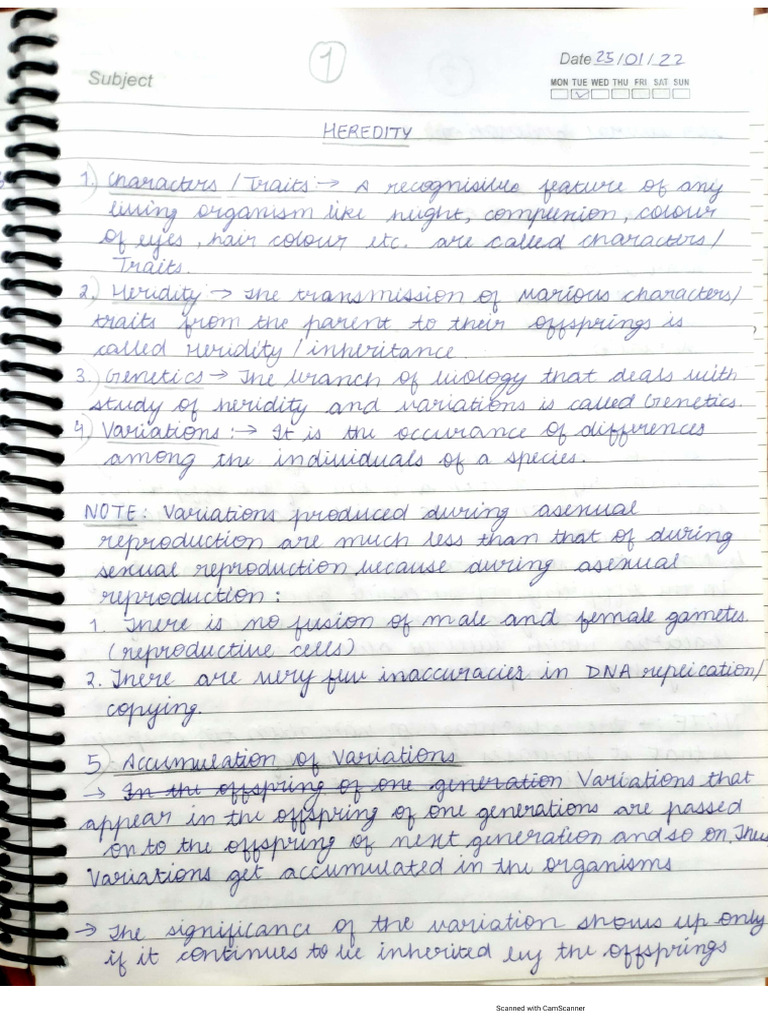 1
Date 25/01/22
Subject
MON TUE WED THU FRI SAT SUN
HEREDITY
1.) Characters / Traits :→ A recognisible feature of any
living organism like height, complexion, colour
of eyes, hair colour etc. are called characters/
Traits.
2.) Heridity → The transmission of various characters/
traits from the parent to their offsprings is
called Heridity / inheritance.
3.) Genetics → The branch of biology that deals with
study of heridity and variations is called Genetics.
4) Variations :→ It is the occurance of differences
among the individuals of a species.
NOTE: Variations produced during asexual
reproduction are much less than that of during
sexual reproduction because during asexual
reproduction :
1. There is no fusion of male and female gametes.
(reproductive cells)
2. There are very few inaccuracies in DNA replication/
copying.
5) Accumulation of Variations
→ In the offspring of one generation Variations that
appear in the offspring of one generations are passed
on to the offspring of next generation and so on. Thus
Variations get accumulated in the organisms
→ The significance of the variation shows up only
if it continues to be inherited by the offsprings
Scanned with CamScanner